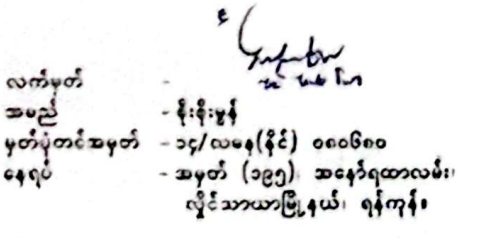 လက်မှတ် -
အမည် - စိုးစိုးမွန်
မှတ်ပုံတင်အမှတ် - ၁၄/လမန(နိုင်) ၀၈၀၆၈၀
နေရပ် - အမှတ် (၁၉၅)၊ အနော်ရထာလမ်း၊
လှိုင်သာယာမြို့နယ်၊ ရန်ကုန်။